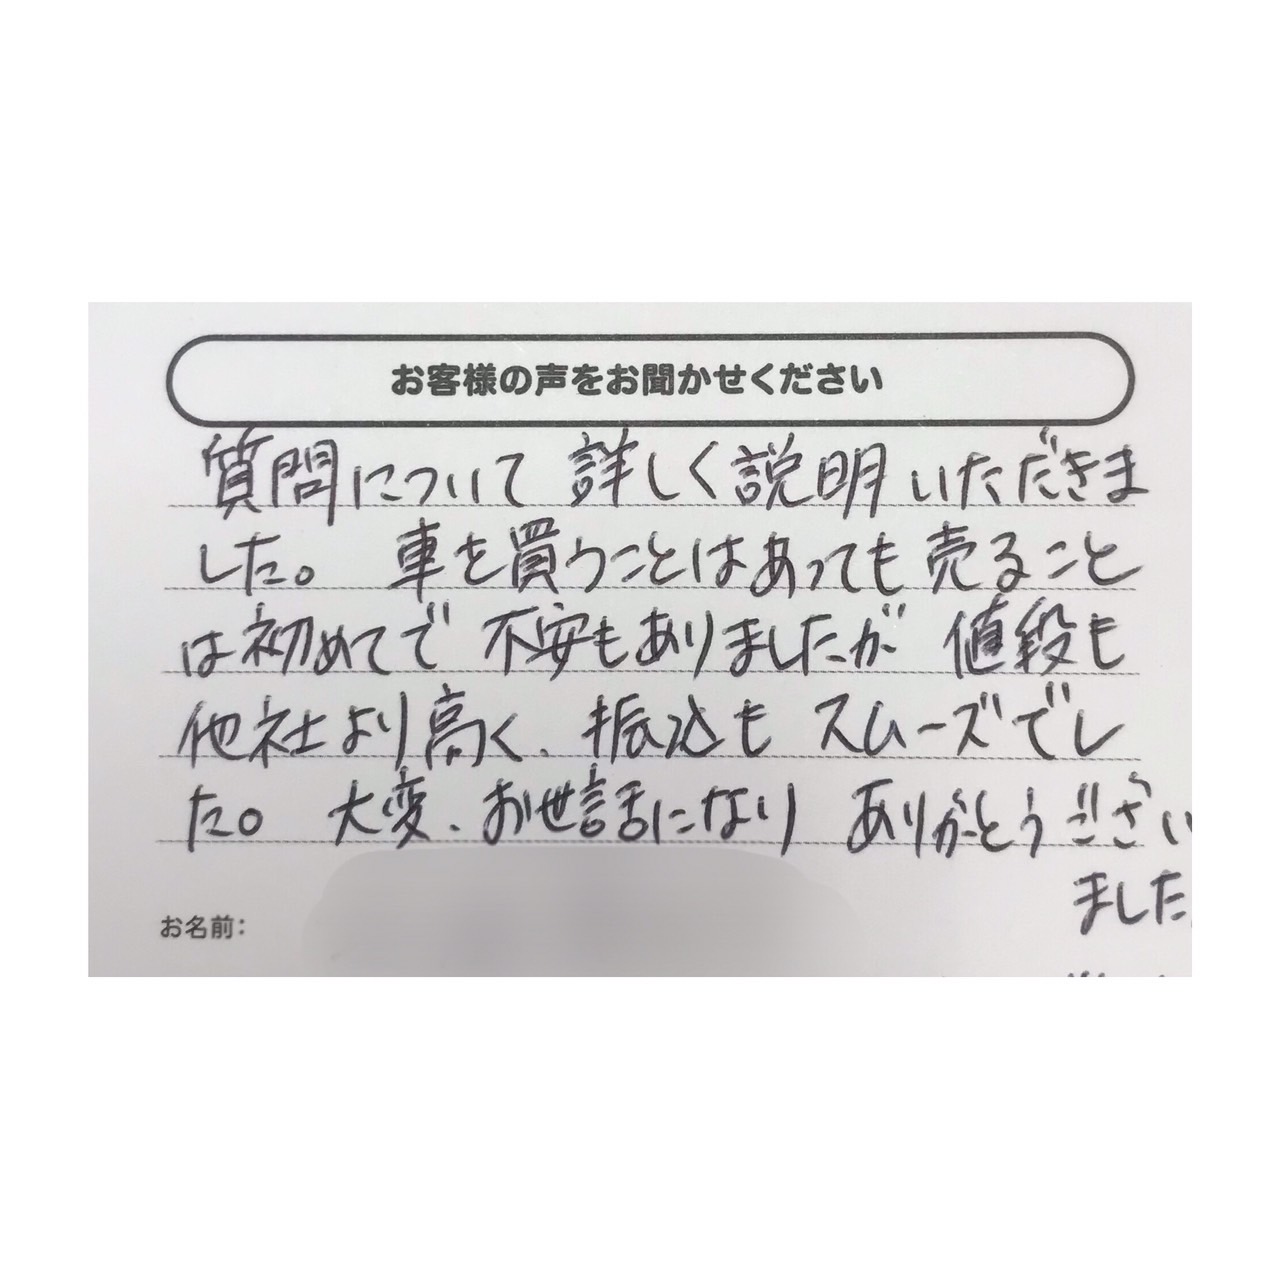 お客様の声をお聞かせください
質問について 詳しく説明いただきま
した。 車を買うことはあっても売ること
は初めてで 不安もありましたが 値段も
他社より高く、振込も スムーズでし
た。 大変、お世話になり ありがとうござい
ました
お名前: